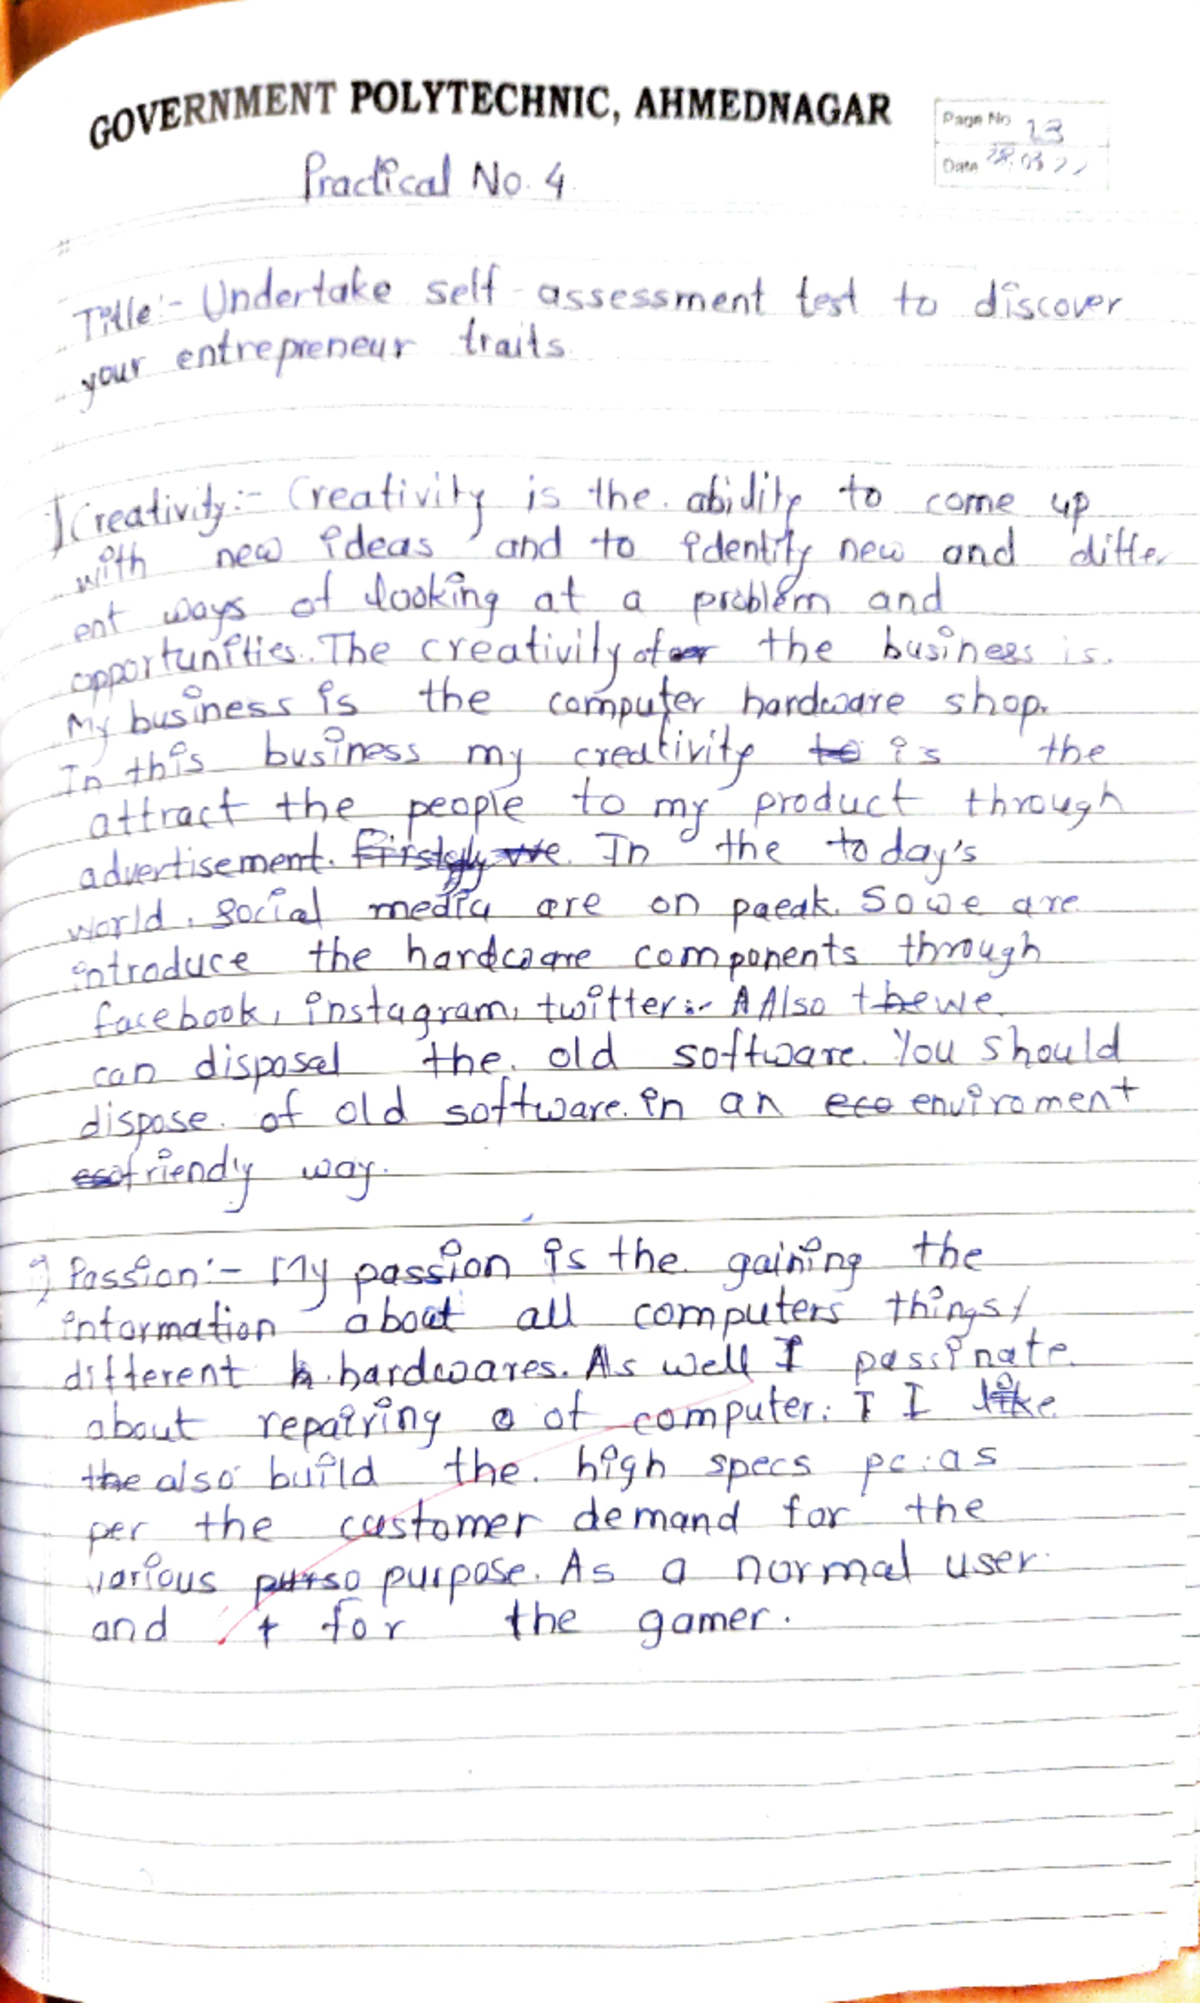 GOVERNMENT POLYTECHNIC, AHMEDNAGAR
Page No 13
Date 28.03.22
Practical No. 4
Title:- Undertake self-assessment test to discover
your entrepreneur traits
1) Creativity:- Creativity is the ability to come up
with new ideas and to identify new and differ
ent ways of looking at a problem and
opportunities. The creativity of the business is.
My business is the computer hardware shop.
In this business my creativity to is the
attract the people to my product through
advertisement. Firstgly we. In the today's
world, social media are on paeak. So we are
introduce the hardcoare components through
facebook, instagram, twitter. A Also the we
can disposal the old software. You should
dispose of old software in an eco enviroment
eco friendly way.
2) Passion:- My passion is the gaining the
information about all computers things/
different h hardwares. As well I passinate
about repairing of computer. I I like
the also build the high specs pc as
per the customer demand for the
various purso purpose. As a normal user
and t for the gamer.